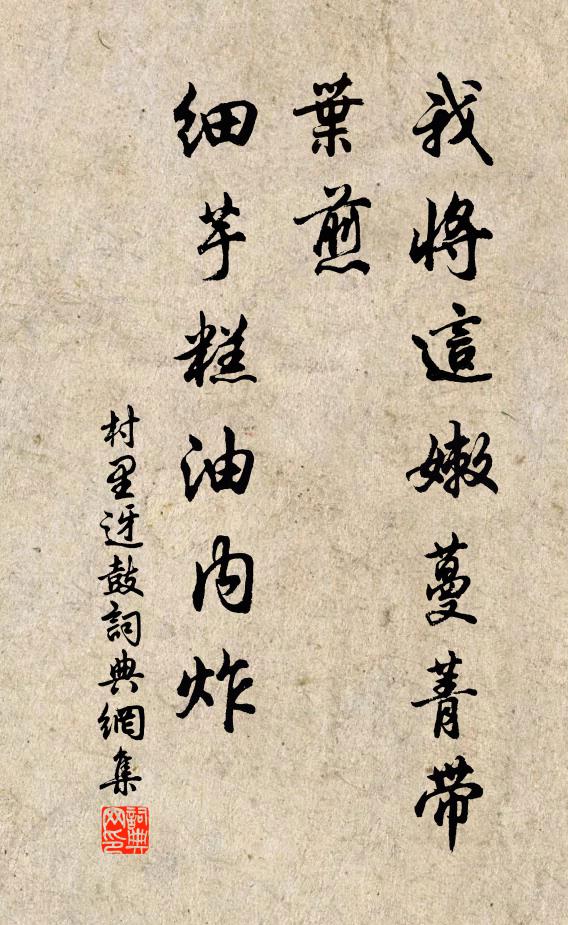 我將這嫩蔓菁帶
葉煎
細芋糕油內炸
村里迓鼓詞典網集
詞典网印